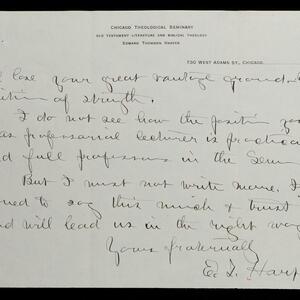 CHICAGO THEOLOGICAL SEMINARY
OLD TESTAMENT LITERATURE AND BIBLICAL THEOLOGY
EDWARD THOMSON HARPER
730 WEST ADAMS ST., CHICAGO.
lose your great vantage ground
of strength.
I do not see how the position you
as professorial lecturer is practica
full professors in the Sem
But I must not write more. I
to say this much & trust
will lead us in the right way
Yours fraternally
E. T. Harp